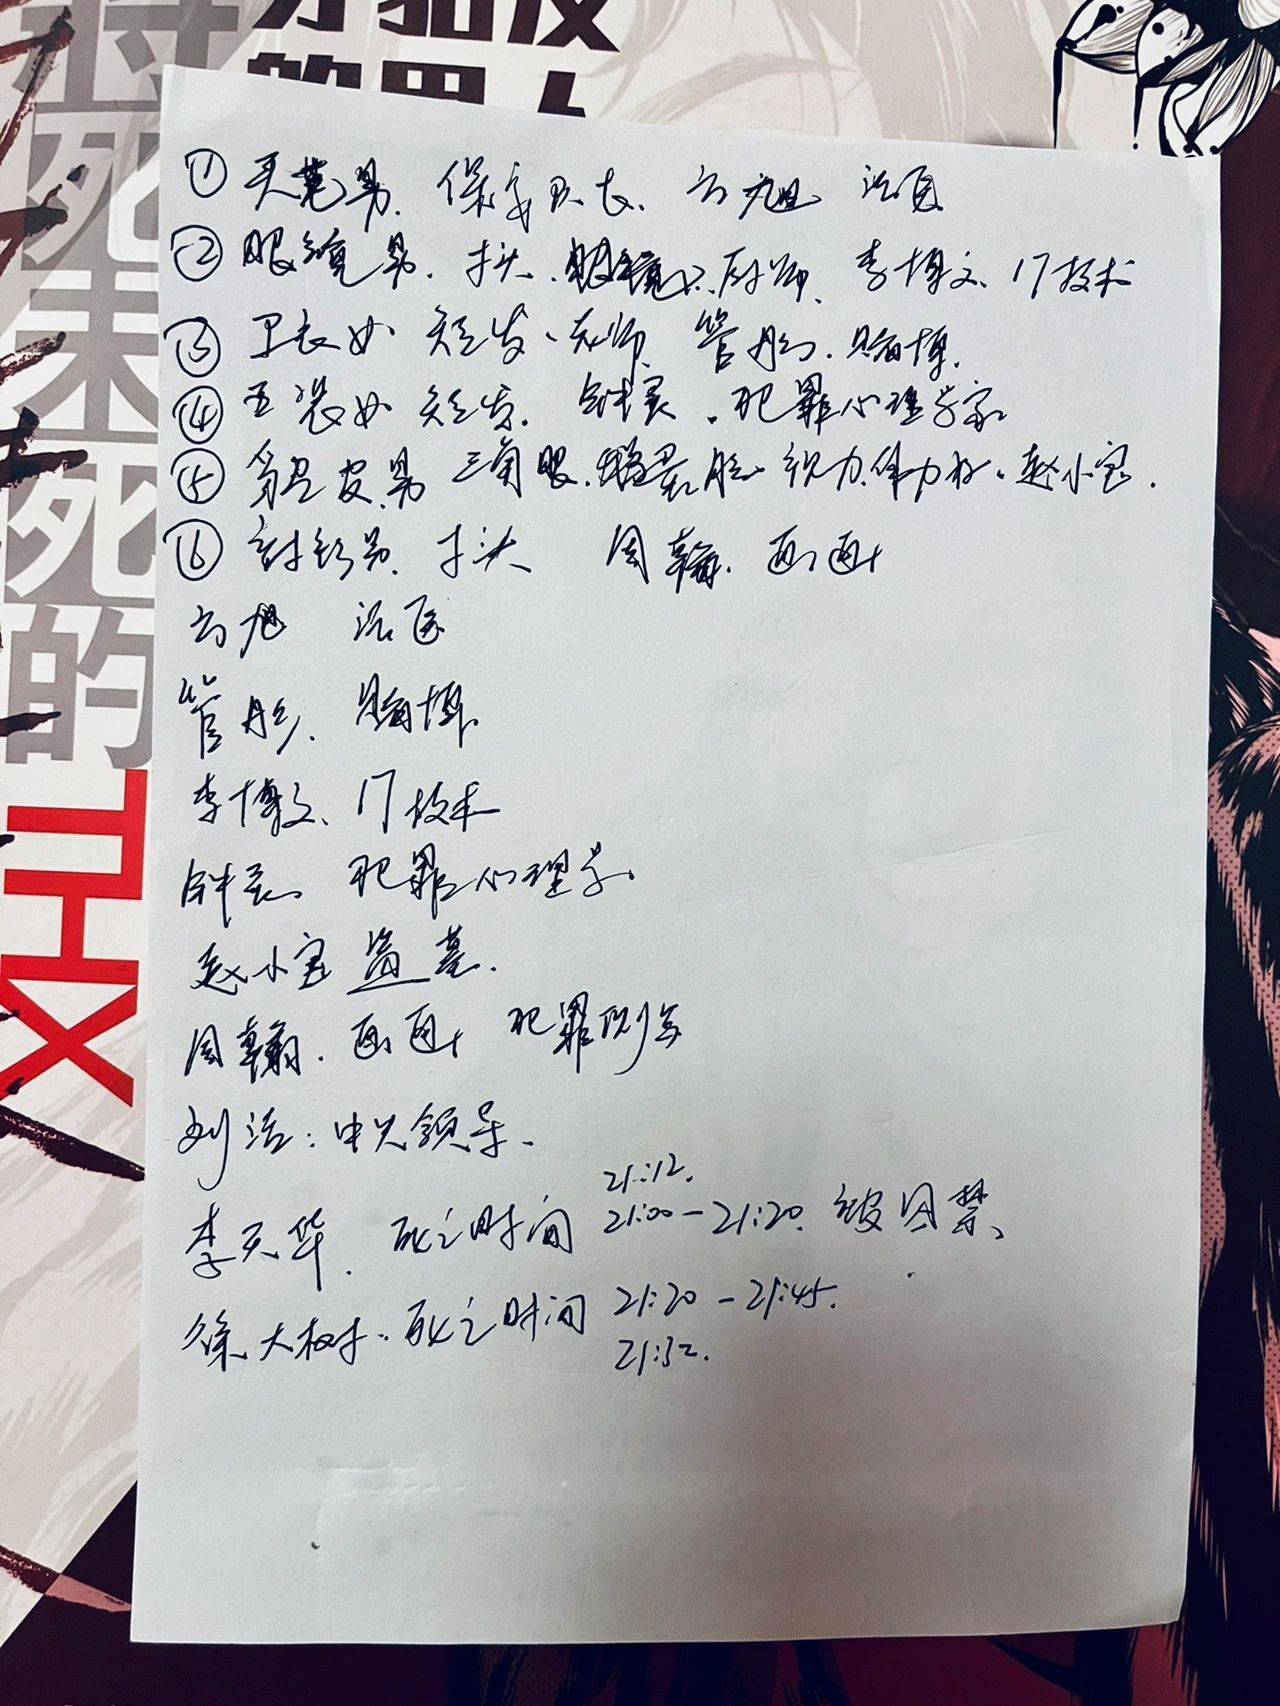 将死未死的
THX
① 男、保安队长、方旭 法医
② 眼镜男、寸头、厨师、李博文、IT技术
③ 卫衣女 短发、老师、管彤、赌博、
④ 女 短发、钟灵、犯罪心理学家
⑤ 皮男 三角眼、脸 视力体力好、赵小宝、
⑥ 男、寸头 周翰、画画
方旭 法医
管彤、赌博、
李博文、IT技术
钟灵 犯罪心理学、
赵小宝 盗墓、
周翰、画画 犯罪侧写
刘洁:中央领导、
21:12、
李天华、死亡时间 21:00-21:20、被囚禁、
徐大树、死亡时间 21:20-21:45、
21:32、